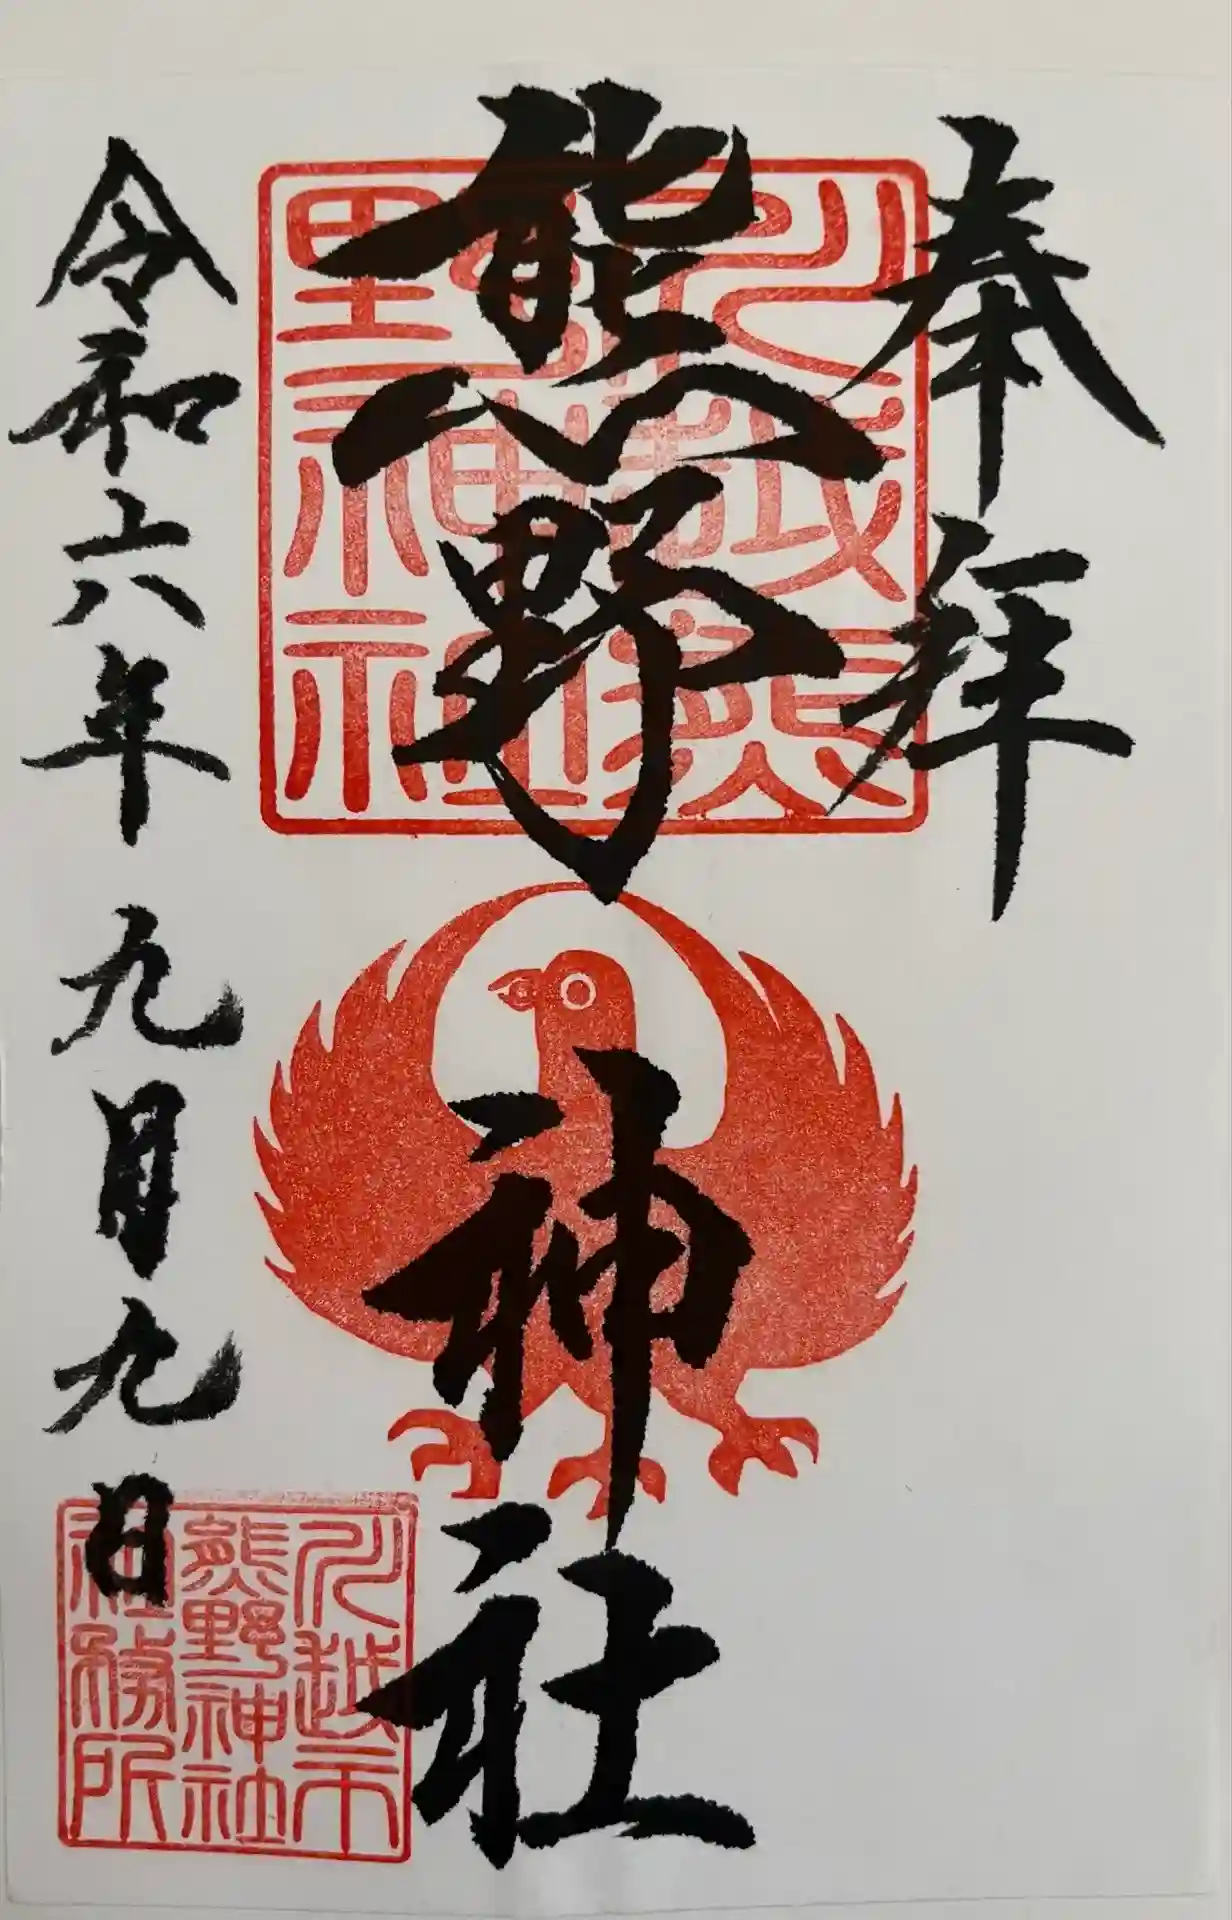 奉拝
熊野神社
令和六年九月九日
川越市
熊野神社
社務所